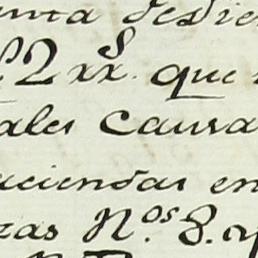 unta desdie
22 xx.s que
ales causa
aciendas en
zas N.os 8. y